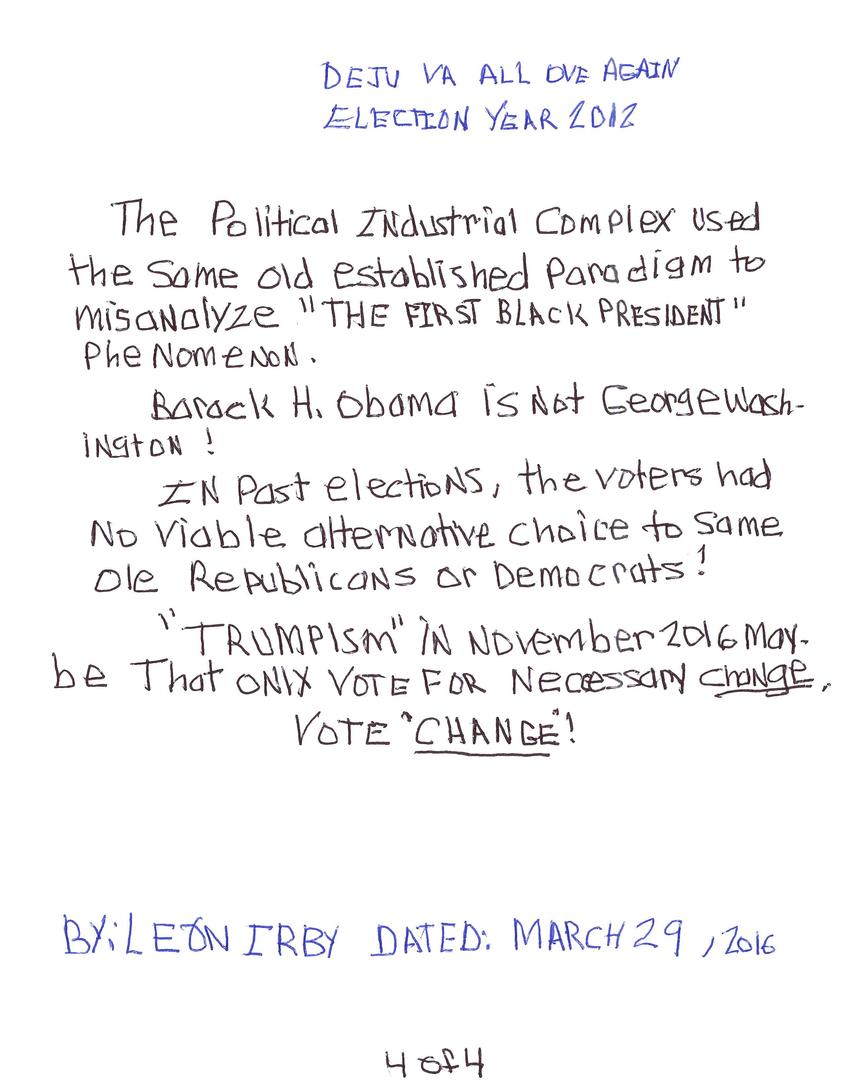 DEJU VA ALL OVE AGAIN
ELECTION YEAR 2012
The Political INdustrial Complex used
the Same old established Paradigm to
misaNalyze "THE FIRST BLACK PRESIDENT"
PheNomeNoN.
Barack H. Obama is Not George Wash-
iNgtoN!
IN Past electioNs, the voters had
No Viable alterNative choice to Same
Ole RepublicaNs or Democrats!
"TRUMPISM" iN November 2016 May-
be That ONLY VOTE FOR Necessary chaNge.
VOTE "CHANGE"!
BY: LEON IRBY DATED: MARCH 29, 2016
4 of 4